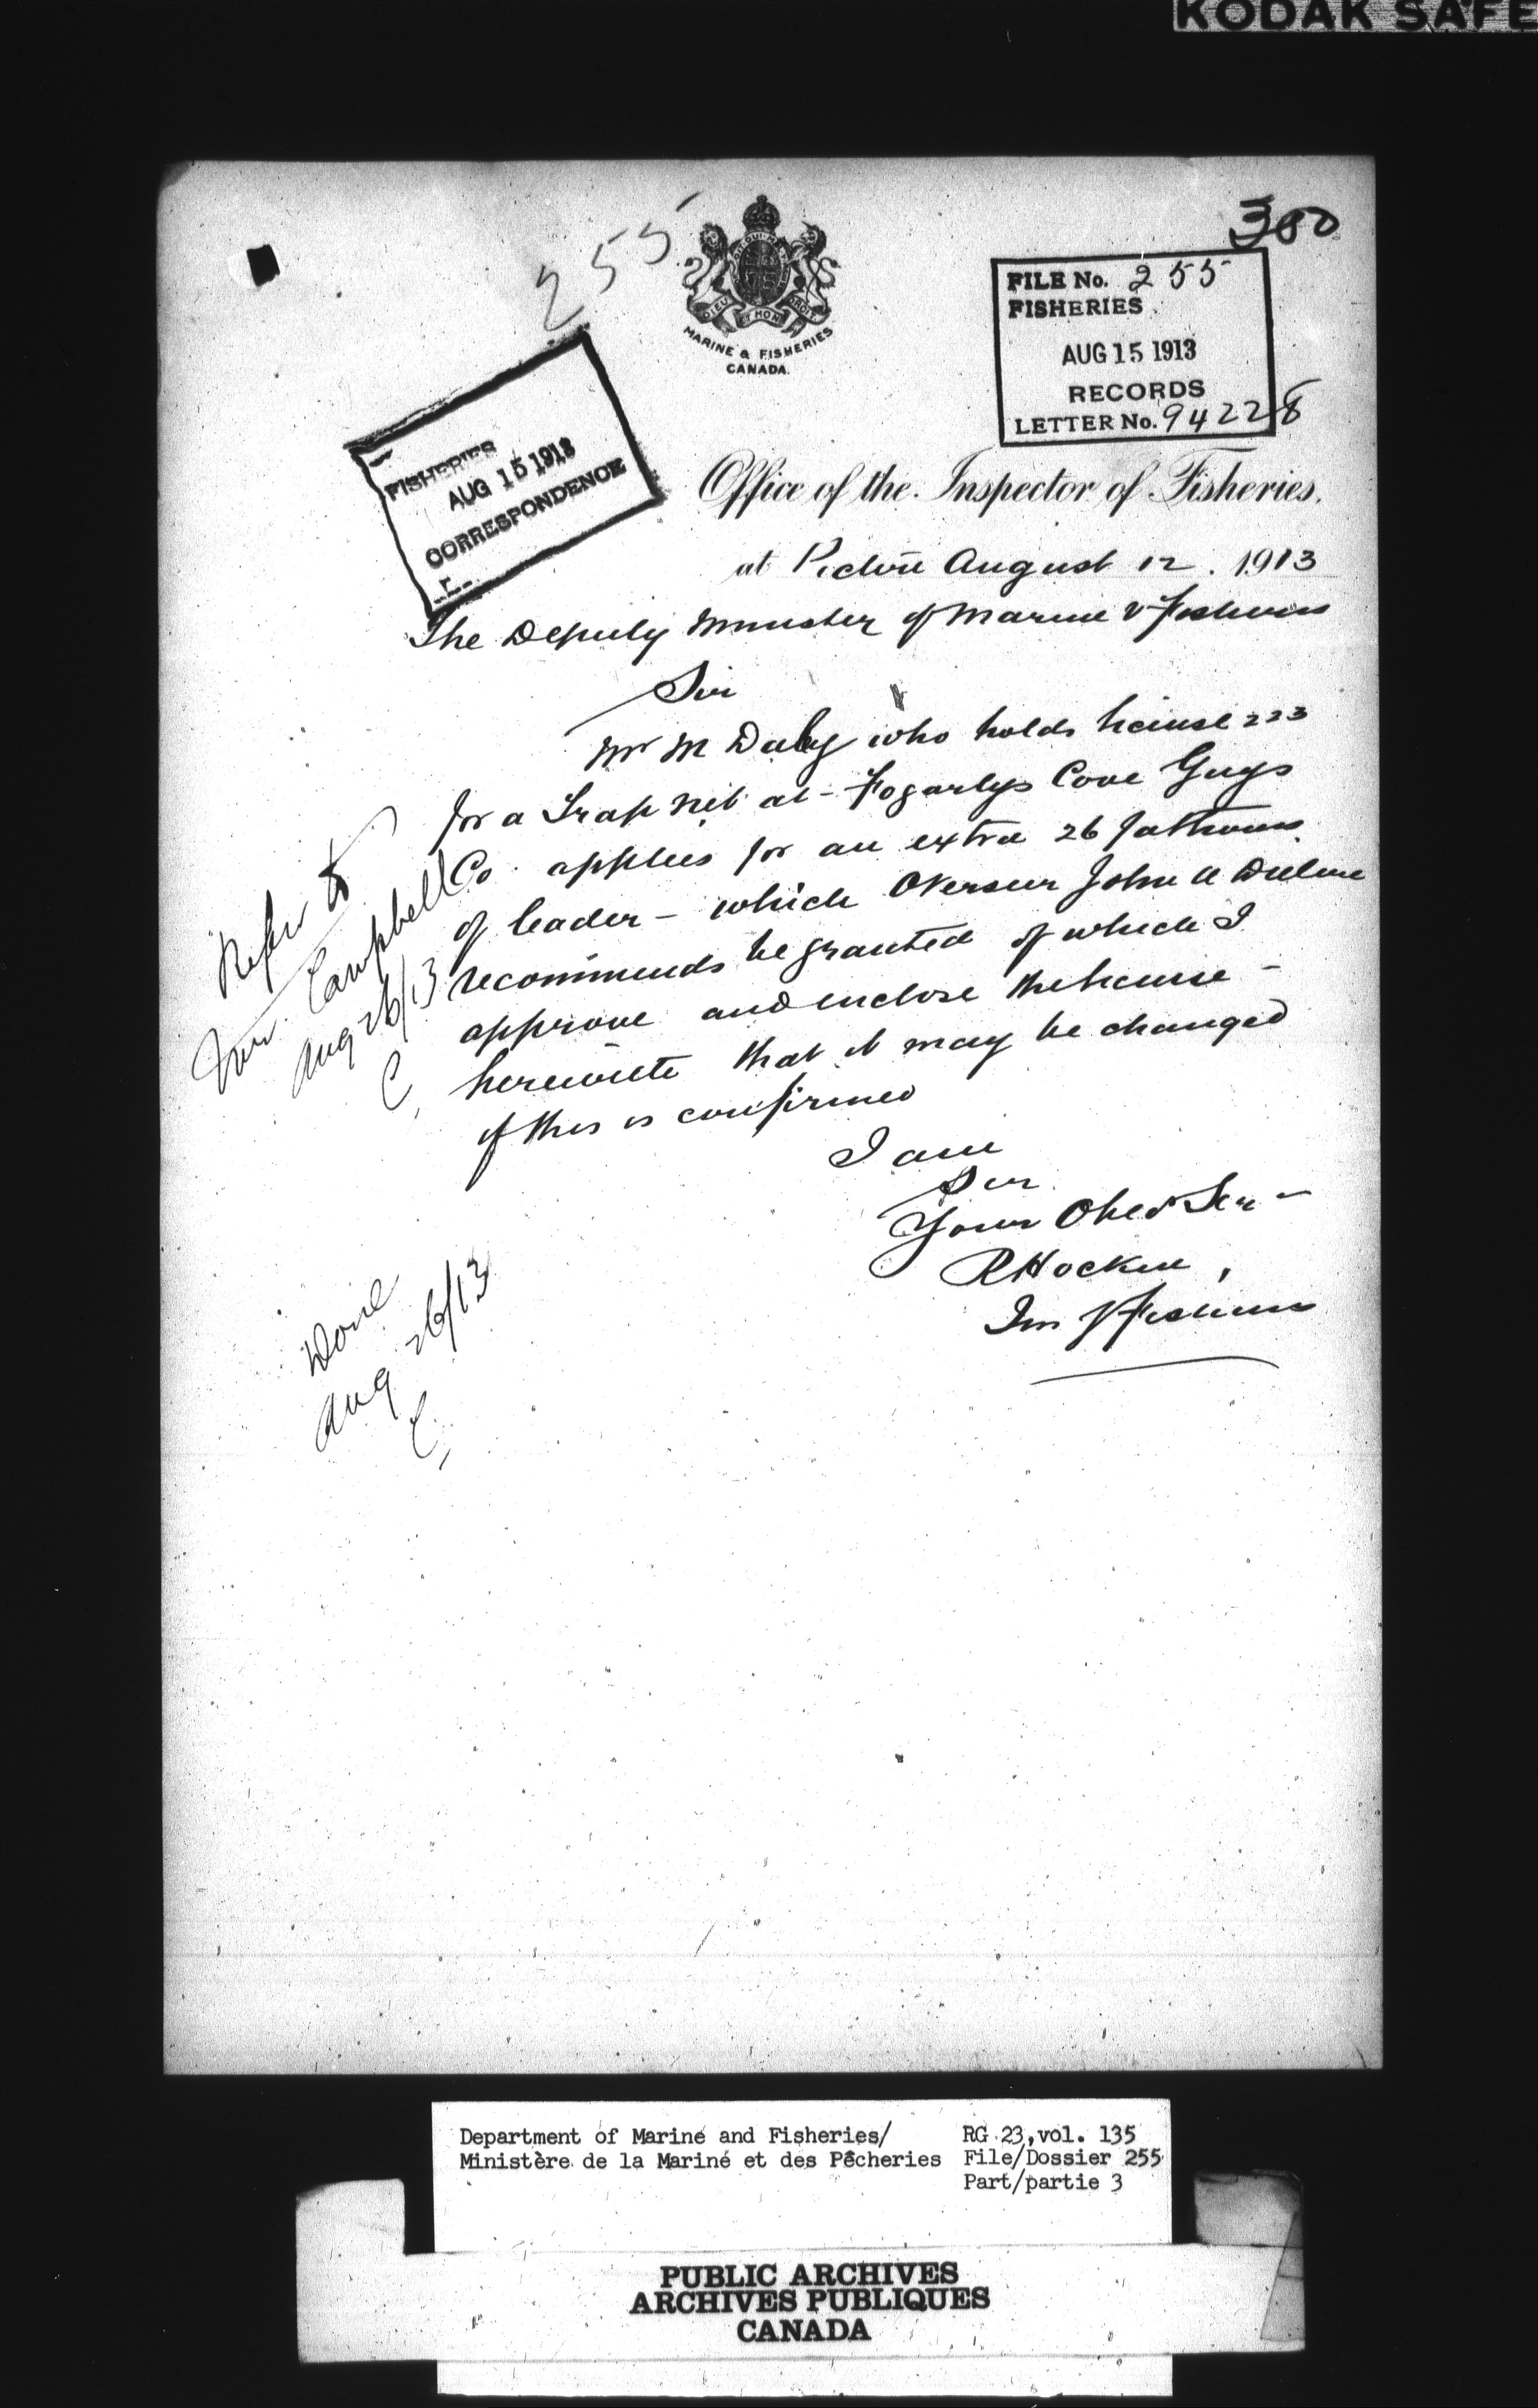 KODAK SAFE
380
255
DIEU ET MON DROIT
MARINE & FISHERIES
CANADA.
FILE No. 255
FISHERIES
AUG 15 1913
RECORDS
LETTER No. 94228
FISHERIES
AUG 15 1913
CORRESPONDENCE
Office of the Inspector of Fisheries.
at Pictou August 12. 1913
The Deputy Minister of Marine & Fisheries
Sir
Mr M Daly who holds license 223
for a Trap net at - Fogartys Cove Guys
Co. applies for an extra 26 fathoms
of leader - which Overseer John A
recommends be granted of which I
approve and enclose the license -
herewith that it may be changed
if this is confirmed
I am
Sir
Your Obed Ser -
R Hockin,
Ins of Fisheries
Refer to
Mr. Campbell
Aug 26/13
C.
Done
Aug 26/13
C.
Department of Marine and Fisheries/
Ministère de la Marine et des Pêcheries
RG 23, vol. 135
File/Dossier 255
Part/partie 3
PUBLIC ARCHIVES
ARCHIVES PUBLIQUES
CANADA